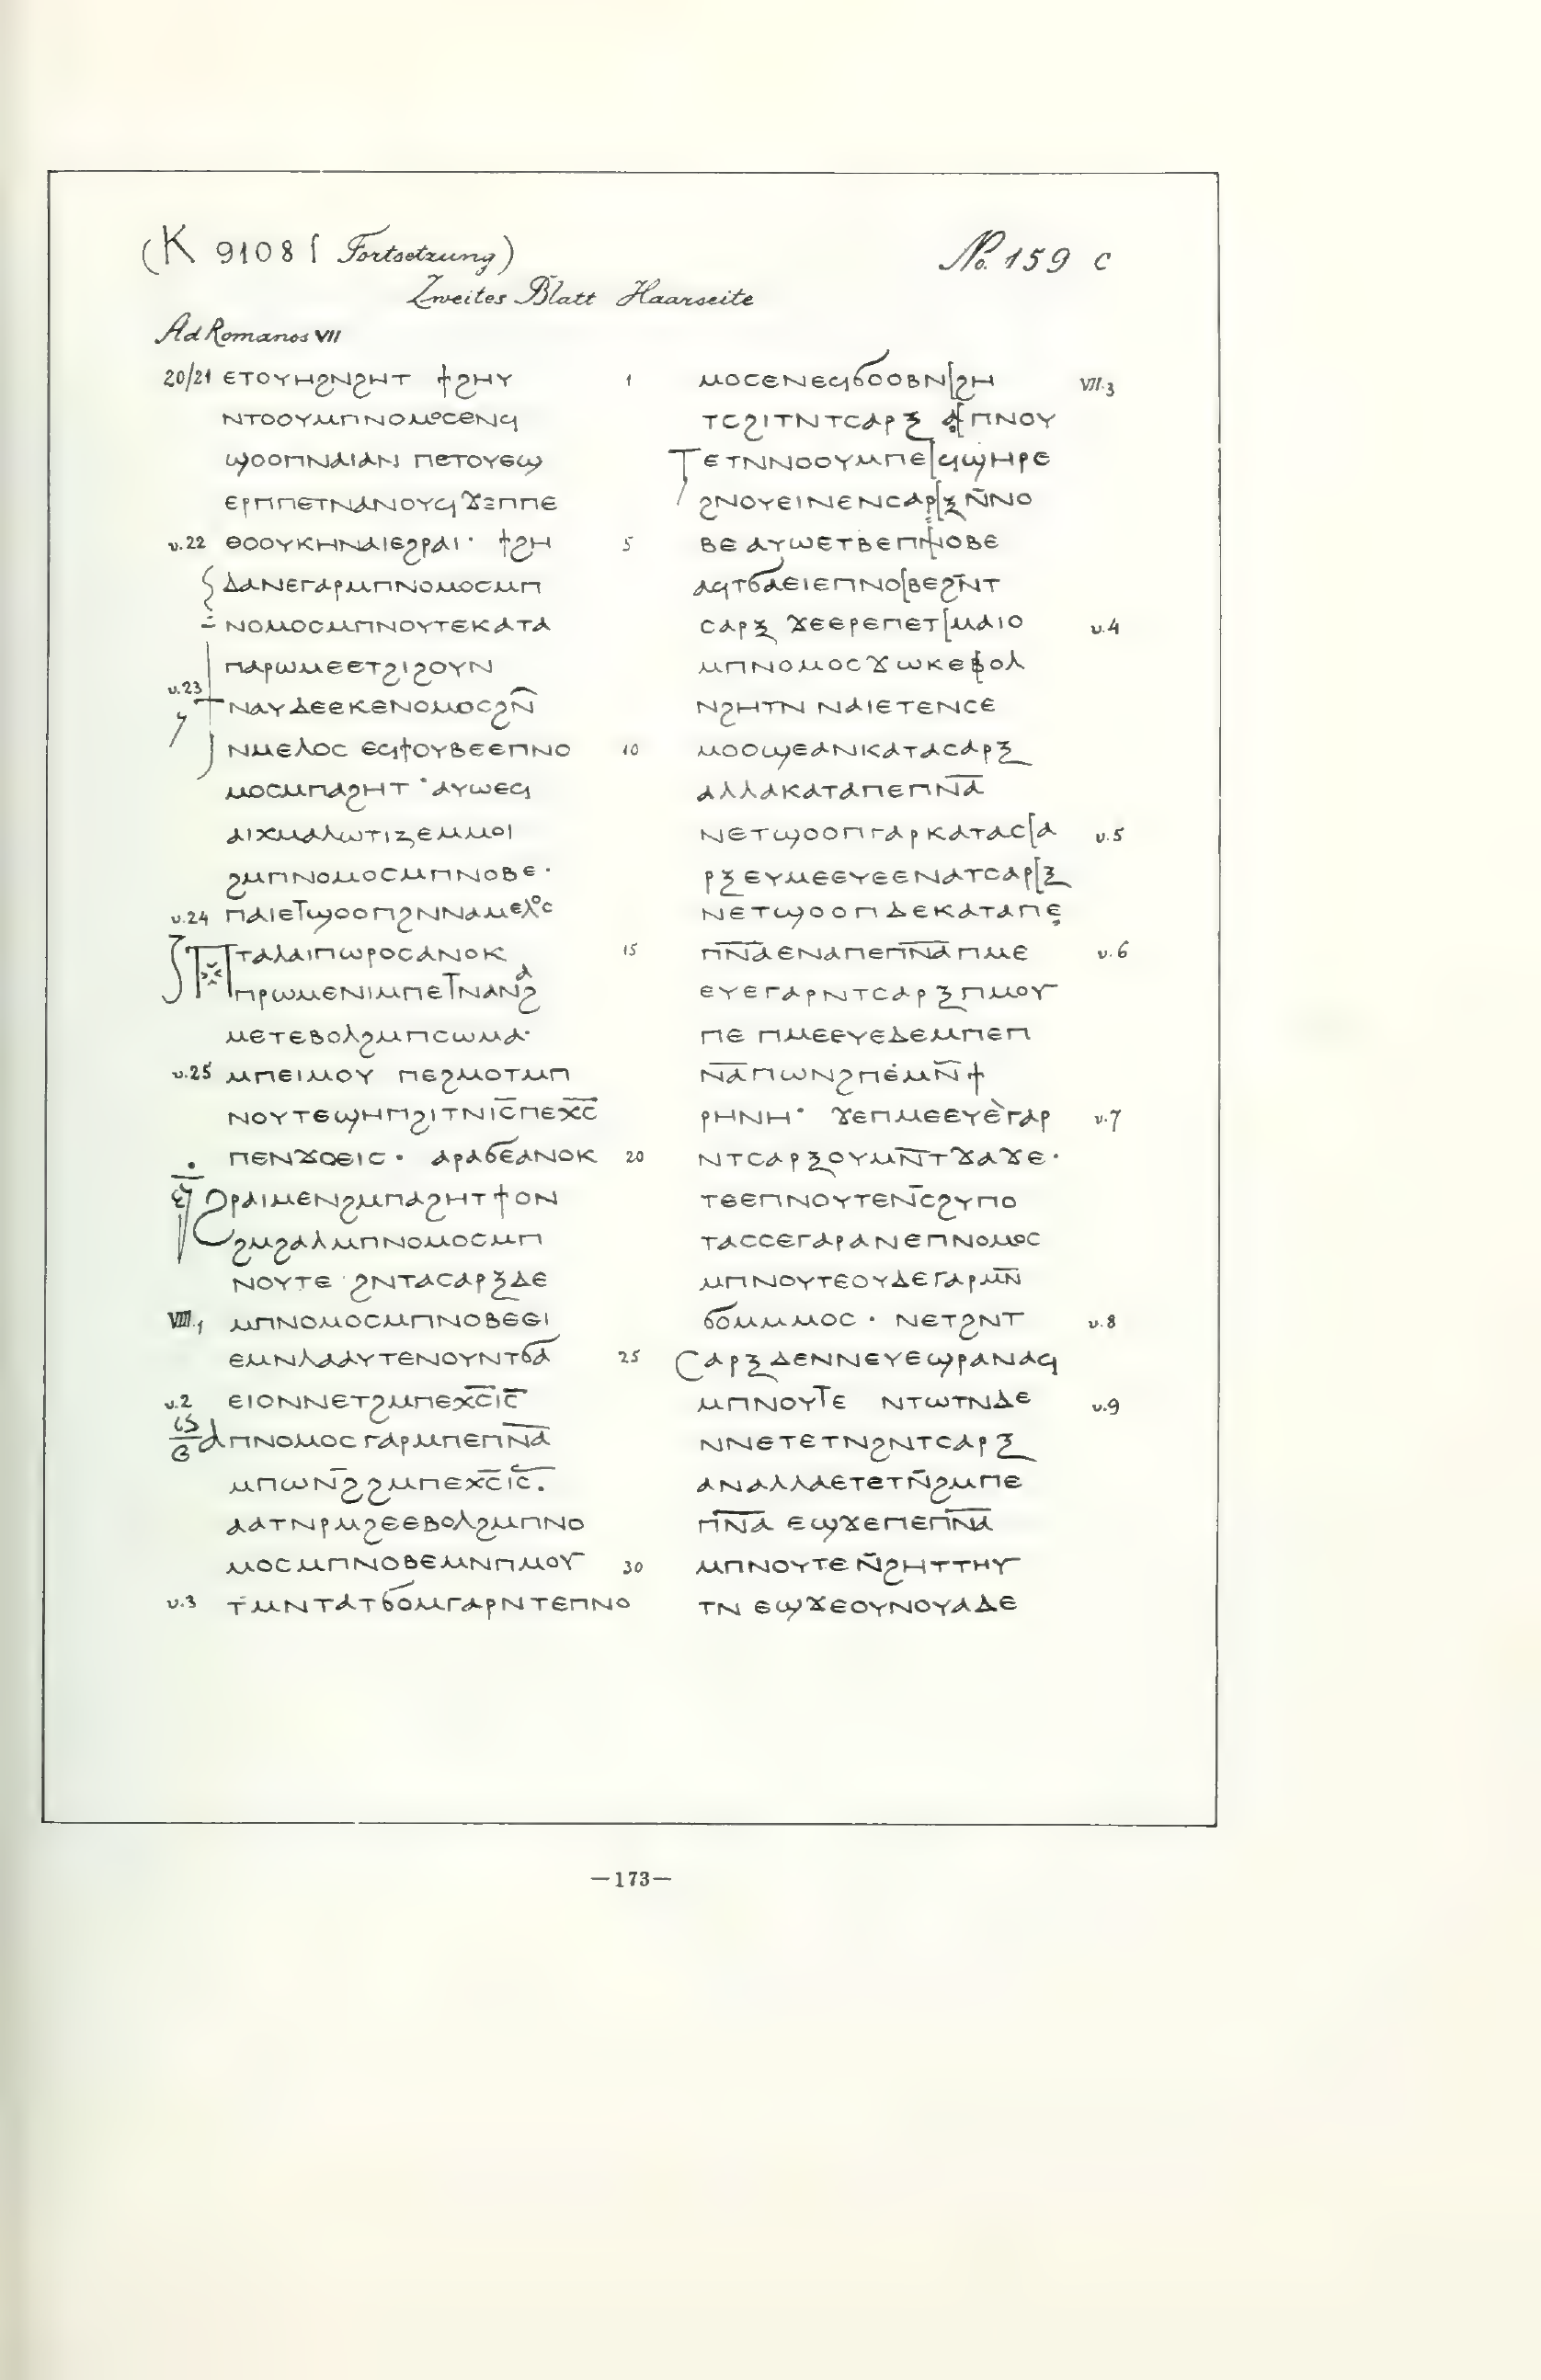 (K 9108 f Fortsetzung) No. 159 c
Zweites Blatt Haarseite
Ad Romanos VII
20/21 ⲉⲧⲟⲩⲏϩⲛϩⲏⲧ ϯϩⲏⲩ 1
ⲛⲧⲟⲟⲩⲙⲡⲛⲟⲙⲟⲥⲉⲛϥ
ϣⲟⲟⲡⲛⲁⲓⲁⲛ ⲡⲉⲧⲟⲩⲉϣ
ⲉⲣⲡⲡⲉⲧⲛⲁⲛⲟⲩϥϫⲉⲡⲡⲉ
v.22 ⲑⲟⲟⲩⲕⲏⲛⲁⲓⲉϩⲣⲁⲓ· ϯϩⲏ 5
ⲇⲁⲛⲉⲅⲁⲣⲙⲡⲛⲟⲙⲟⲥⲙⲡ
ⲛⲟⲙⲟⲥⲙⲡⲛⲟⲩⲧⲉⲕⲁⲧⲁ
ⲡⲁⲣⲱⲙⲉⲉⲧϩⲓϩⲟⲩⲛ
v.23 ⲛⲁⲩⲇⲉⲉⲕⲉⲛⲟⲙⲟⲥϩⲛ̄
ⲛⲙⲉⲗⲟⲥ ⲉϥϯⲟⲩⲃⲉⲉⲡⲛⲟ 10
ⲙⲟⲥⲙⲡⲁϩⲏⲧ ·ⲁⲩⲱⲉϥ
ⲁⲓⲭⲙⲁⲗⲱⲧⲓⲍⲉⲙⲙⲟⲓ
ϩⲙⲡⲛⲟⲙⲟⲥⲙⲡⲛⲟⲃⲉ·
v.24 ⲡⲁⲓⲉⲧϣⲟⲟⲡϩⲛⲛⲁⲙⲉⲗⲟⲥ
ⲡⲧⲁⲗⲁⲓⲡⲱⲣⲟⲥⲁⲛⲟⲕ 15
ⲡⲣⲱⲙⲉⲛⲓⲙⲡⲉⲧⲛⲁⲛⲁϩ
ⲙⲉⲧⲉⲃⲟⲗϩⲙⲡⲥⲱⲙⲁ·
v.25 ⲙⲡⲉⲓⲙⲟⲩ ⲡⲉϩⲙⲟⲧⲙⲡ
ⲛⲟⲩⲧⲉϣⲏⲡϩⲓⲧⲛⲓ̅ⲥ̅ⲡⲉⲭ̅ⲥ̅
ⲡⲉⲛϫⲟⲉⲓⲥ· ⲁⲣⲁϭⲉⲁⲛⲟⲕ 20
ϩⲣⲁⲓⲙⲉⲛϩⲙⲡⲁϩⲏⲧϯⲟⲛ
ϩⲙϩⲁⲗⲙⲡⲛⲟⲙⲟⲥⲙⲡ
ⲛⲟⲩⲧⲉ·ϩⲛⲧⲁⲥⲁⲣⲝⲇⲉ
VIII.1 ⲙⲡⲛⲟⲙⲟⲥⲙⲡⲛⲟⲃⲉⲉⲓ
ⲉⲙⲛⲗⲁⲁⲩⲧⲉⲛⲟⲩⲛⲧϭⲁ 25
v.2 ⲉⲓⲟⲛⲛⲉⲧϩⲙⲡⲉⲭ̅ⲥ̅ⲓ̅ⲥ̅
ⲁⲡⲛⲟⲙⲟⲥⲅⲁⲣⲙⲡⲉⲡⲛ̅ⲁ̅
ⲙⲡⲱⲛ̄ϩϩⲙⲡⲉⲭ̅ⲥ̅ⲓ̅ⲥ̅.
ⲁⲁⲧⲛⲣⲙϩⲉⲉⲃⲟⲗϩⲙⲡⲛⲟ
ⲙⲟⲥⲙⲡⲛⲟⲃⲉⲙⲛⲡⲙⲟⲩ 30
v.3 ⲧⲙⲛⲧⲁⲧϭⲟⲙⲅⲁⲣⲛⲧⲉⲡⲛⲟ
ⲙⲟⲥⲉⲛⲉϥϭⲟⲟⲃⲛ[ϩⲏ VII.3
ⲧⲥϩⲓⲧⲛⲧⲥⲁⲣⲝ ⲁ[ⲡⲛⲟⲩ
ⲧⲉⲧⲛⲛⲟⲟⲩⲙⲡⲉ[ϥϣⲏⲣⲉ
ϩⲛⲟⲩⲉⲓⲛⲉⲛⲥⲁⲣ[ⲝⲛ̄ⲛⲟ
ⲃⲉ ⲁⲩⲱⲉⲧⲃⲉⲡ[ⲛⲟⲃⲉ
ⲁϥⲧϭⲁⲉⲓⲉⲡⲛⲟ[ⲃⲉϩⲛ̄ⲧ
ⲥⲁⲣⲝ ϫⲉⲉⲣⲉⲡⲉⲧ[ⲙⲁⲓⲟ v.4
ⲙⲡⲛⲟⲙⲟⲥϫⲱⲕⲉⲃⲟⲗ
ⲛϩⲏⲧⲛ ⲛⲁⲓⲉⲧⲉⲛⲥⲉ
ⲙⲟⲟϣⲉⲁⲛⲕⲁⲧⲁⲥⲁⲣⲝ
ⲁⲗⲗⲁⲕⲁⲧⲁⲡⲉⲡⲛ̅ⲁ̅
ⲛⲉⲧϣⲟⲟⲡⲅⲁⲣⲕⲁⲧⲁⲥ[ⲁ v.5
ⲣⲝⲉⲩⲙⲉⲉⲩⲉⲉⲛⲁⲧⲥⲁⲣ[ⲝ
ⲛⲉⲧϣⲟⲟⲡⲇⲉⲕⲁⲧⲁⲡⲉ
ⲡⲛ̅ⲁ̅ⲉⲛⲁⲡⲉⲡⲛ̅ⲁ̅ⲡⲙⲉ v.6
ⲉⲩⲉⲅⲁⲣⲛⲧⲥⲁⲣⲝⲡⲙⲟⲩ
ⲡⲉ ⲡⲙⲉⲉⲩⲉⲇⲉⲙⲡⲉⲡ
ⲛ̅ⲁ̅ⲡⲱⲛϩⲡⲉⲙⲛ̄ϯ
ⲣⲏⲛⲏ· ϫⲉⲡⲙⲉⲉⲩⲉ̀ⲅⲁⲣ v.7
ⲛⲧⲥⲁⲣⲝⲟⲩⲙⲛ̄ⲧϫⲁϫⲉ·
ⲧⲉⲉⲡⲛⲟⲩⲧⲉⲛ̄ⲥϩⲩⲡⲟ
ⲧⲁⲥⲥⲉⲅⲁⲣⲁⲛⲉⲡⲛⲟⲙⲟⲥ
ⲙⲡⲛⲟⲩⲧⲉⲟⲩⲇⲉⲅⲁⲣⲙⲛ̅
ϭⲟⲙⲙⲙⲟⲥ · ⲛⲉⲧϩⲛⲧ v.8
ⲥⲁⲣⲝⲇⲉⲛⲛⲉⲩⲉϣⲣⲁⲛⲁϥ
ⲙⲡⲛⲟⲩⲧⲉ ⲛⲧⲱⲧⲛⲇⲉ v.9
ⲛⲛⲉⲧⲉⲧⲛϩⲛⲧⲥⲁⲣⲝ
ⲁⲛⲁⲗⲗⲁⲉⲧⲉⲧⲛ̄ϩⲙⲡⲉ
ⲡⲛ̅ⲁ̅ ⲉϣϫⲉⲡⲉⲡⲛ̅ⲁ̅
ⲙⲡⲛⲟⲩⲧⲉⲛ̄ϩⲏⲧⲧⲏⲩ
ⲧⲛ ⲉϣϫⲉⲟⲩⲛⲟⲩⲁⲇⲉ
—173—